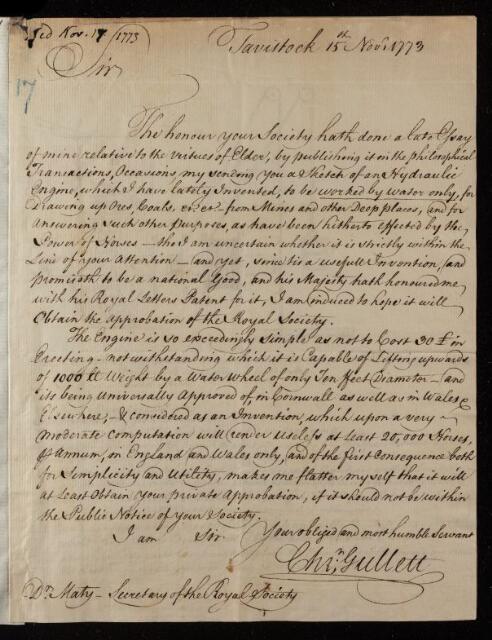 Red Nov. 17 1773
Tavistock 15th Novr. 1773
Sir
17
The honour your Society hath done a late Essay
of mine relative to the virtues of Elder, by publishing it in the philosophical
Transactions, Occasions, my sending you a Sketch of an Hydraulic
Engine, which I have lately Invented, to be worked by Water only, for
Drawing up Ores, Coals, &c &c - from Mines and other Deep places, and for
answering such other purposes, as have been hitherto effected by the
Power of Horses - tho' I am uncertain whether it is strictly within the
Line of your Attention - and yet, since tis a usefull Invention, and
promiseth to be a national Good, and his Majesty hath honoured me
with his Royal Letters Patent for it, I am induced to hope it will
Obtain the approbation of the Royal Society.
The Engine is so exceedingly simple as not to Cost 30 £ in
Erecting - notwithstanding which it is Capable of Lifting upwards
of 1000 lb Weight by a Water Wheel of only Ten ffeet Diameter - and
its being Universally Approved of, in Cornwall as well as in Wales &
Elsewhere; - & considered as an Invention, which upon a very -
moderate Computation will render Useless at Least 20,000 Horses,
Annum, in England and Wales only, and of the first Consequence both
for Simplicity and Utility, makes me flatter myself that it will
at Least Obtain your private Approbation, if it should not be within
the Public Notice of your Society.
I am Sir Your obliged and most humble Servant
Chr. Gullett
Dr. Maty - Secretary of the Royal Society